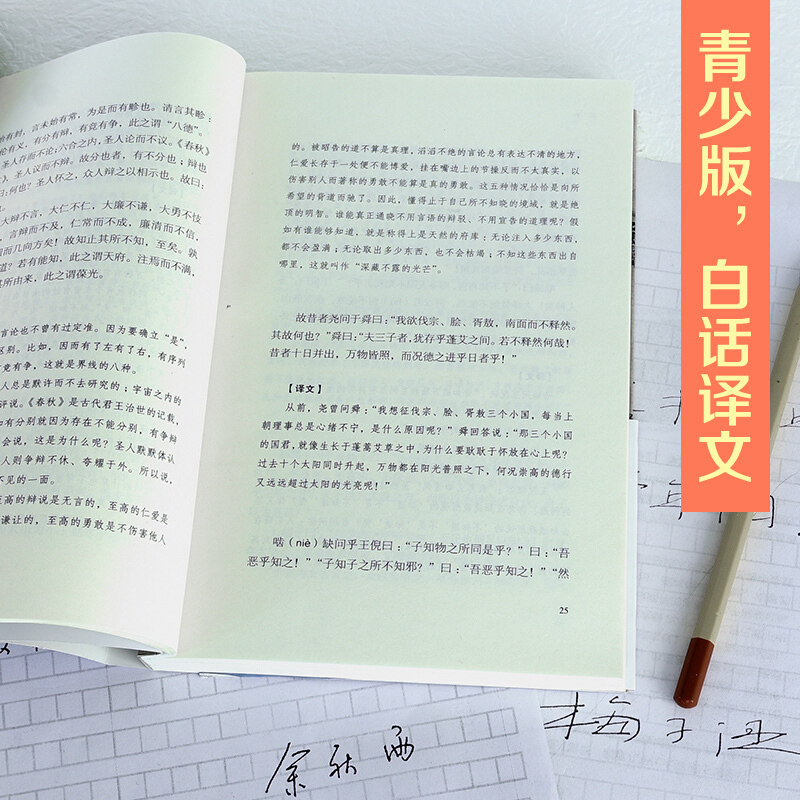 青少版,白话译文
未始有常,为是而有畛也。请言其畛:
有分有辩,有竞有争,此之谓“八德”。
圣人存而不论;六合之内,圣人论而不议。《春秋》
圣人议而不辩。故分也者,有不分也;辩也
何也?圣人怀之,众人辩之以相示也。故曰:
大辩不言,大仁不仁,大廉不谦,大勇不忮
言辩而不及,仁常而不成,廉清而不信,
而几向方矣!故知止其所不知,至矣。孰
道?若有能知,此之谓天府。注焉而不满,
所由来,此之谓葆光。
言论也不曾有过定准。因为要确立“是”,
区别。比如,因而有了左有了右,有序列
竞有争,这就是界线的八种。
人总是默许而不去研究的;宇宙之内的
评说。《春秋》是古代君王治世的记载,
有分别就因为存在不能分别,有争辩
会说,这是为什么呢?圣人默默体认
人则争辩不休、夸耀于外。所以说,
不见的一面。
至高的辩说是无言的,至高的仁爱是
谦让的,至高的勇敢是不伤害他人
的。被昭告的道不算是真理,滔滔不绝的言论总有表达不清的地方,
仁爱长存于一处便不能博爱,挂在嘴边上的节操反而不太真实,以
伤害别人而著称的勇敢不能算是真的勇敢。这五种情况恰恰是向所
希望的背道而驰了。因此,懂得止于自己所不知晓的境域,就是绝
顶的明智。谁能真正通晓不用言语的辩驳、不用宣告的道理呢?假
如有谁能够知道,就是称得上是天然的府库:无论注入多少东西,
都不会盈满;无论取出多少东西,也不会枯竭;不知这些东西出自
哪里,这就叫作“深藏不露的光芒”。
故昔者尧问于舜曰:“我欲伐宗、脍、胥敖,南面而不释然。
其故何也?”舜曰:“夫三子者,犹存乎蓬艾之间。若不释然何哉!
昔者十日并出,万物皆照,而况德之进乎日者乎!”
【译文】
从前,尧曾问舜:“我想征伐宗、脍、胥敖三个小国,每当上
朝理事总是心绪不宁,是什么原因呢?”舜回答说:“那三个小国
的国君,就像生长于蓬蒿艾草之中,为什么要耿耿于怀放在心上呢?
过去十个太阳同时升起,万物都在阳光普照之下,何况崇高的德行
又远远超过太阳的光亮呢!”
啮(niè)缺问乎王倪曰:“子知物之所同是乎?”曰:“吾
恶乎知之!”“子知子之所不知邪?”曰:“吾恶乎知之!”“然
25
余秋雨
梅子涵